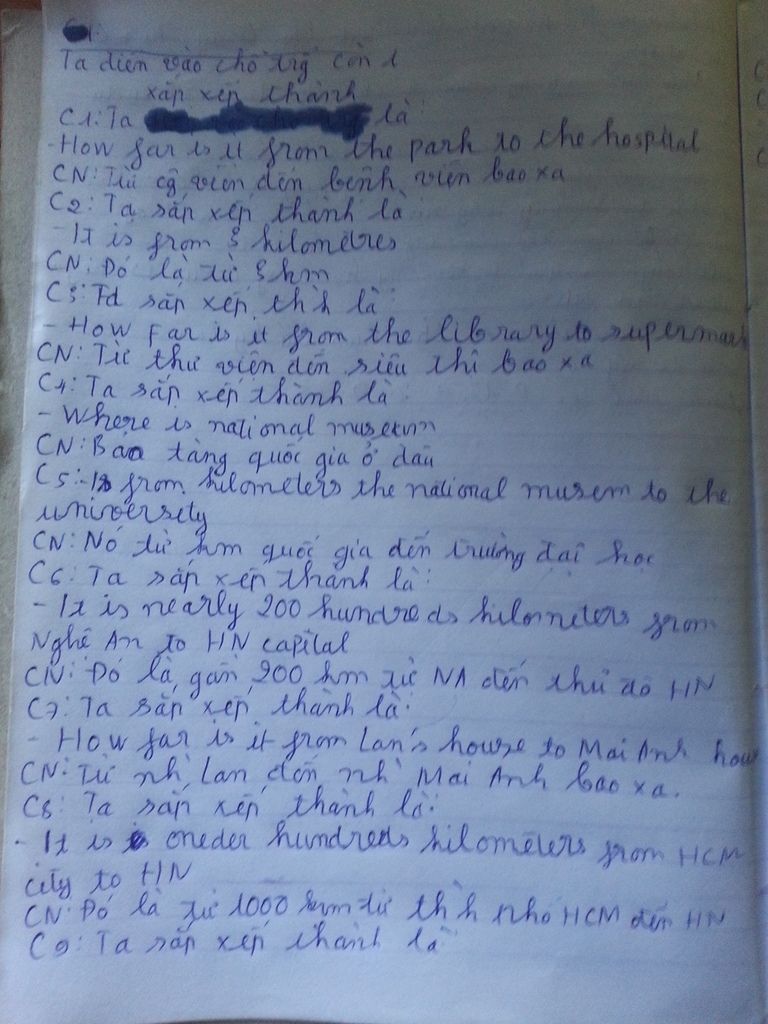 Ta điền vào chỗ trg còn l
xắp xếp thành
C1: Ta là:
- How far is it from the park to the hospital
CN: Từ cg viên đến bênh viện bao xa
C2: Ta sắp xếp thành là
- It is from 3 kilometres
CN: Đó là từ 3 km
C3: Ta sắp xếp th'h là:
- How Far is it from the library to supermark
CN: Từ thư viện đến siêu thi bao xa
C4: Ta sắp xếp thành là:
- Where is national museum
CN: Bảo tàng quốc gia ở dâu
C5: - Is from kilometers the national musem to the
university
CN: Nó từ km quốc gia đến trường đại học
C6: Ta sắp xếp thành là:
- It is nearly 200 hundreds kilometers from
Nghê An to HN capital
CN: Đó là gần 200 km từ NA đến thủ đô HN
C7: Ta sắp xếp thành là:
- How far is it from Lan's house to Mai Anh hou
CN: Từ nh` Lan đến nh` Mai Anh bao xa.
C8: Ta sắp xếp thành là:
- It is oneder hundreds kilometers from HCM
city to HN
CN: Đó là từ 1000 km từ th`h phố HCM đến HN
C9: Ta sắp xếp thành là